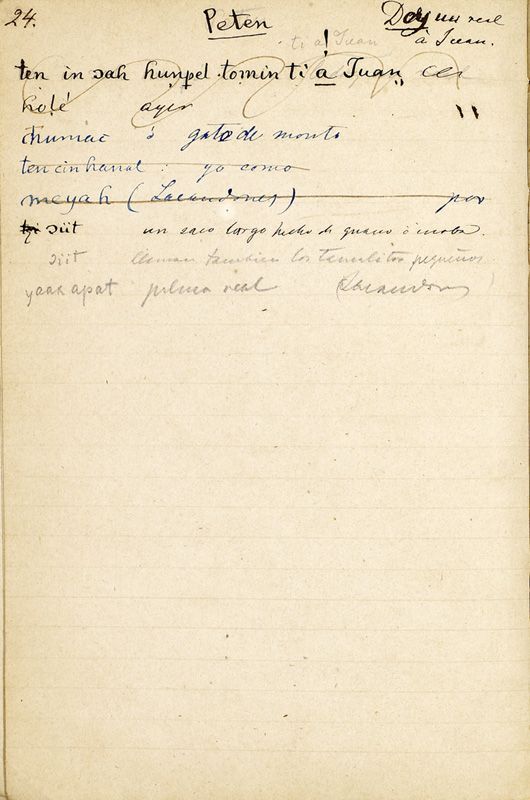 24.
Peten
Doy un real
à Juan.
ti a Juan
ten in ɔah hunpel tomin ti a Juan
holé ayer
chumac ó gato de monte
ten cin hanal : yo como
meyah (Lacandones) por
ɔiit un saco largo hecho de guano ó
ɔiit llaman tambien los pequeños
yaax apat real (Lacandones)